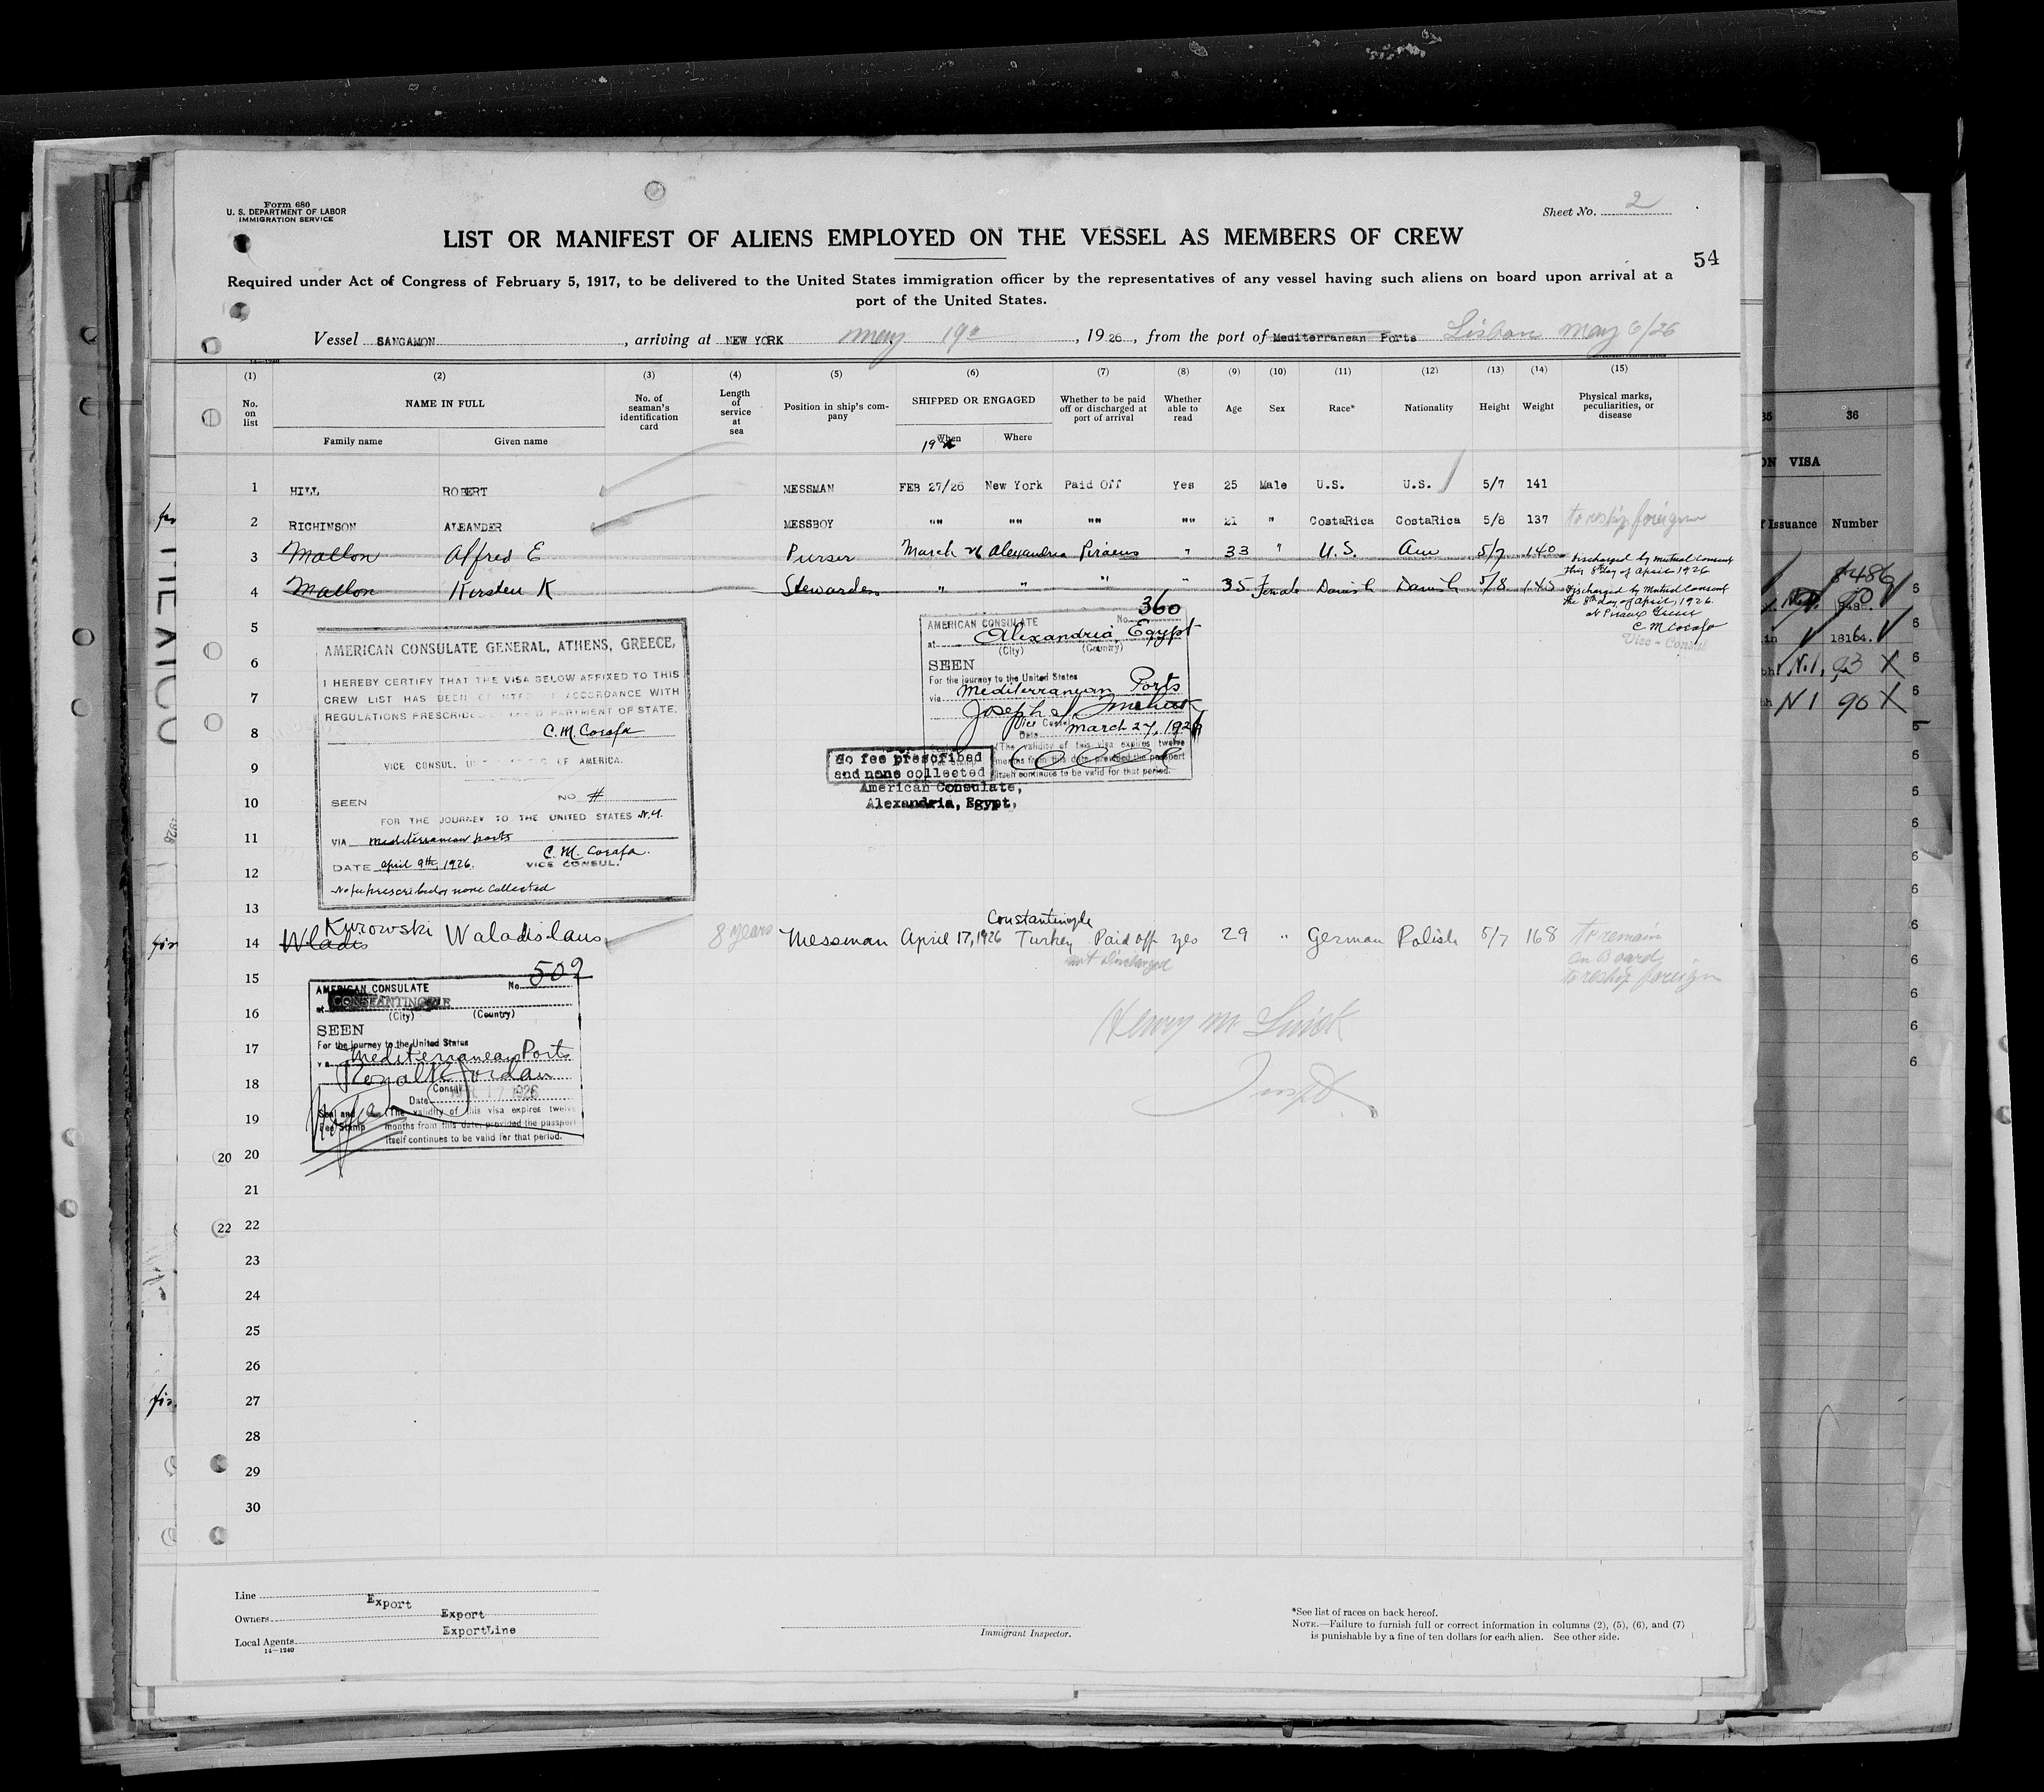 Form 680
U. S. DEPARTMENT OF LABOR
IMMIGRATION SERVICE
Sheet No. 2
LIST OR MANIFEST OF ALIENS EMPLOYED ON THE VESSEL AS MEMBERS OF CREW
54
Required under Act of Congress of February 5, 1917, to be delivered to the United States immigration officer by the representatives of any vessel having such aliens on board upon arrival at a
port of the United States.
Vessel SANGAMON, arriving at NEW YORK May 19, 1926, from the port of Mediterranean Ports Lisbon May 6/26
14—1240
(1) (2) (3) (4) (5) (6) (7) (8) (9) (10) (11) (12) (13) (14) (15)
No. on list NAME IN FULL No. of seaman's identification card Length of service at sea Position in ship's company SHIPPED OR ENGAGED Whether to be paid off or discharged at port of arrival Whether able to read Age Sex Race* Nationality Height Weight Physical marks, peculiarities, or disease
Family name Given name When Where
1 HILL ROBERT MESSMAN FEB 27/26 New York Paid Off Yes 25 Male U.S. U.S. 5/7 141
2 RICHINSON ALEANDER MESSBOY "" "" "" "" 21 " CostaRica CostaRica 5/8 137 to reship foreign
3 Mallon Alfred E Purser March 26 Alexandria Piraeus " 33 " U.S. Am 5/7 140 Discharged by mutual consent
this 8th day of April 1926
4 Mallon Kirsten K Stewardess " " " " 35 Female Danish Danish 5/8 145 Discharged by Mutual Consent
the 8th day of April, 1926.
at Piraeus Greece
C. M. Corafa
Vice-Consul
5
6
7
8
9
10
11
12
13
AMERICAN CONSULATE GENERAL, ATHENS, GREECE,
I HEREBY CERTIFY THAT THE VISA BELOW AFFIXED TO THIS
CREW LIST HAS BEEN GRANTED IN ACCORDANCE WITH
REGULATIONS PRESCRIBED THE DEPARTMENT OF STATE.
C. M. Corafa
VICE CONSUL. OF AMERICA.
SEEN NO #
FOR THE JOURNEY TO THE UNITED STATES N.Y.
VIA Mediterranean ports
DATE April 9th, 1926. C. M. Corafa.
VICE CONSUL.
No fee prescribed, none collected
AMERICAN CONSULATE No. 360
at Alexandria, Egypt
(City) (Country)
SEEN
For the journey to the United States
via Mediterranean Ports
Joseph
Vice Consul
Date March 27, 1926
(The validity of this visa expires twelve
months from this date, provided the passport
itself continues to be valid for that period.
No fee prescribed
and none collected
American Consulate,
Alexandria, Egypt.
14 Wladis Kurowski Waladislaus 8 years Messman April 17, 1926 Constantinople Turkey Paid off yes 29 " German Polish 5/7 168 to remain
on Board,
to reship foreign
not Discharged
15
16
17
18
19
AMERICAN CONSULATE No. 509
at CONSTANTINOPLE
(City) (Country)
SEEN
For the journey to the United States
via Mediterranean Ports
Royal R Jordan
Consul
Date APR 17 1926
Seal and Fee Stamp
(The validity of this visa expires twelve
months from this date, provided the passport
itself continues to be valid for that period.
Henry
Inspt
20 20
21
22 22
23
24
25
26
27
28
29
30
Line Export
Owners Export
Local Agents ExportLine
14—1240
Immigrant Inspector.
*See list of races on back hereof.
NOTE.—Failure to furnish full or correct information in columns (2), (5), (6), and (7)
is punishable by a fine of ten dollars for each alien. See other side.
35 36
ON VISA
f Issuance Number
8486
18164.
N.1, 93 X
N 1 90 X